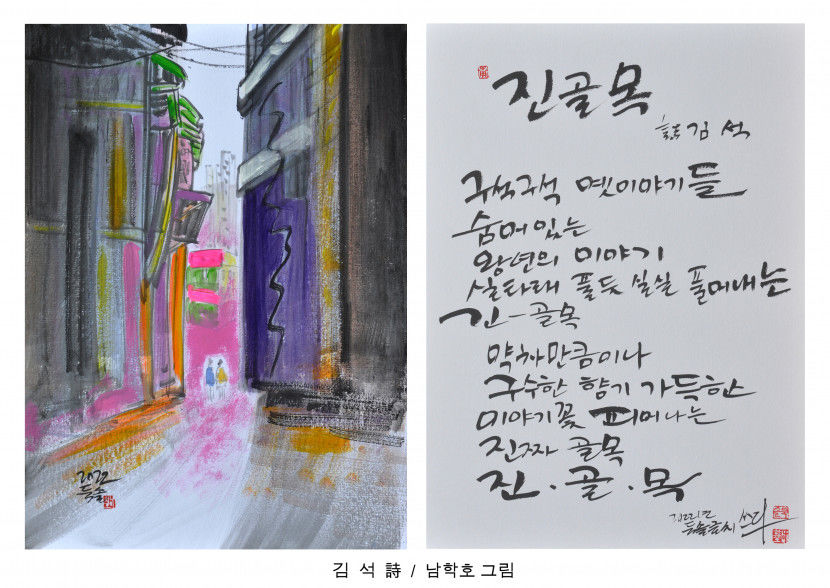 2022
진골목
詩 김 석
구석구석 옛이야기들
숨어있는
왕년의 이야기
실타래 풀듯 실실 풀어내는
긴-골목
약차만큼이나
구수한 향기 가득한
이야기꽃 피어나는
진짜 골목
진.골.목
김 석 詩 / 남학호 그림